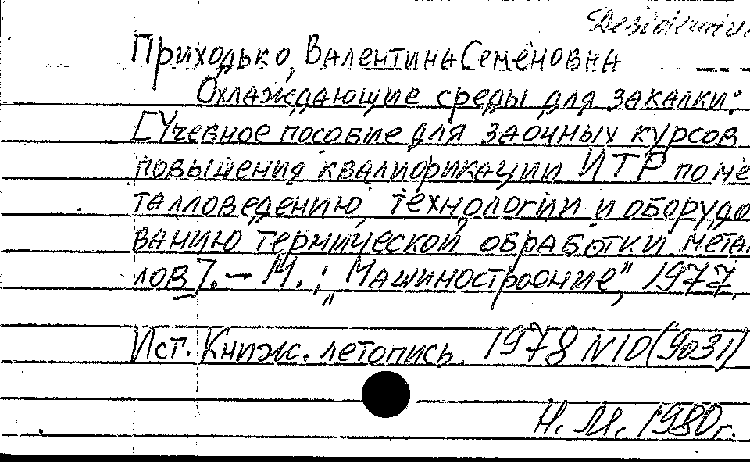 Приходько, Валентина Семёновна
Охлаждающие среды для закалки:
[Учебное пособие для заочных курсов
повышения квалификации ИТР по ме
талловедению, технологии и оборудо
ванию термической обработки метал
лов]. – М.: "Машиностроение", 1977.
Ист. Книж. летопись. 1978 N10 (9031)
Н. М. 1980г.